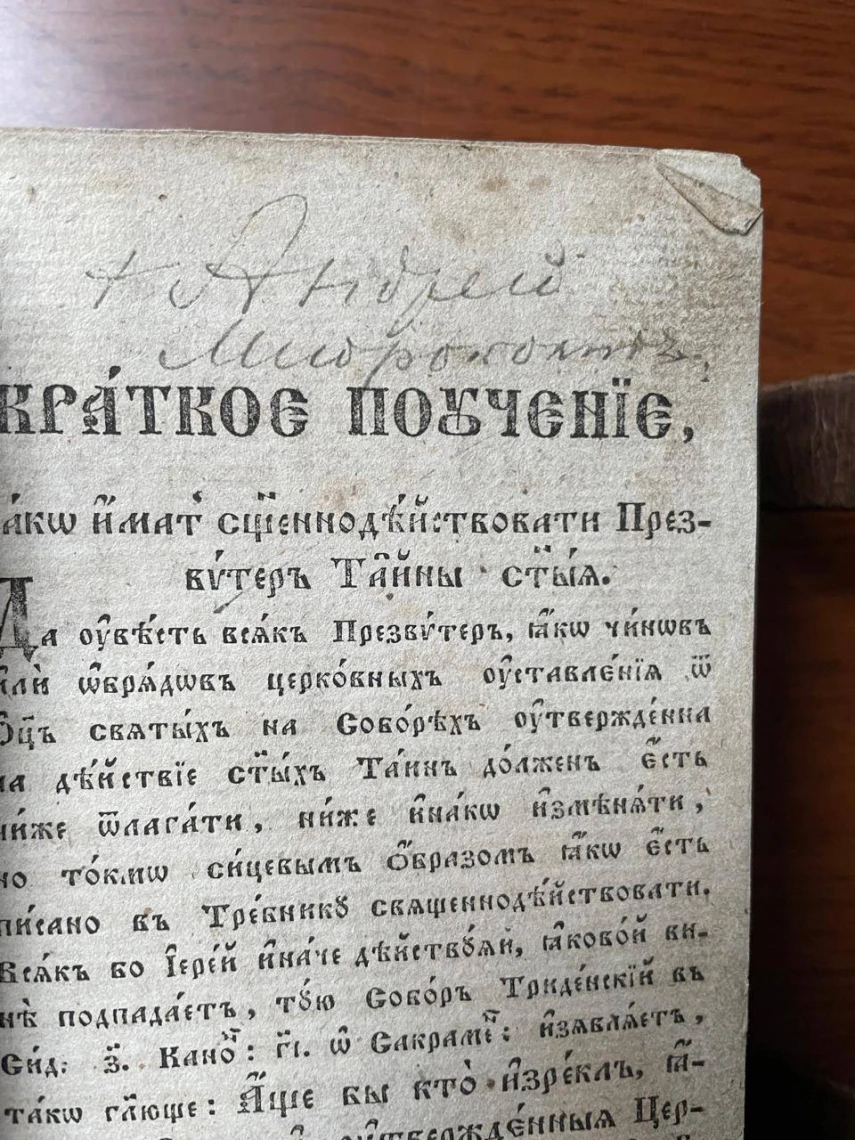 + Андрей
КРА́ТКОЕ ПОꙊЧЕНЇЕ,
а́кѡ и҆́мат̾ сщ҃еннодѣ́йствовати През-
вѵ́теръ Та̑йны ст҃ы́ѧ.
Да ᲂу҆вѣ́сть всѧ́къ Презвѵ́теръ, ꙗ҆́кѡ чи́нѡвъ
и҆лѝ ѡ҆брѧ́дѡвъ церко́вныхъ ᲂу҆ставле́нїѧ ѿ
Ѻ҆ц҃ъ свѧты́хъ на Собо́рѣхъ ᲂу҆твержде́нна
на дѣ́йствїе ст҃ы́хъ Та́инъ до́лженъ є҆́сть
ни́же ѿлага́ти, ни́же и҆на́кѡ и҆змѣнѧ́ти,
но то́кмѡ си́цевымъ ѻ҆́бразомъ ꙗ҆́кѡ є҆́сть
пи́сано въ Тре́бникꙋ свѧщеннодѣ́йствовати.
Всѧ́къ бо І҆ере́й и҆на́че дѣ́йствꙋѧй, ꙗ҆ково́й ви-
нѣ̀ подпада́етъ, тꙋ́ю Собо́ръ Триде́нскїй въ
Си́д: з҃. Кано́н: г҃і. ѡ҆ Сакраме́н: и҆з̾ѧвлѧ́етъ,
та́кѡ гл҃юще: А҆́ще бы кто̀ и҆зре́клъ, ꙗ҆́-
ᲂу҆твержде́нныѧ Цер-